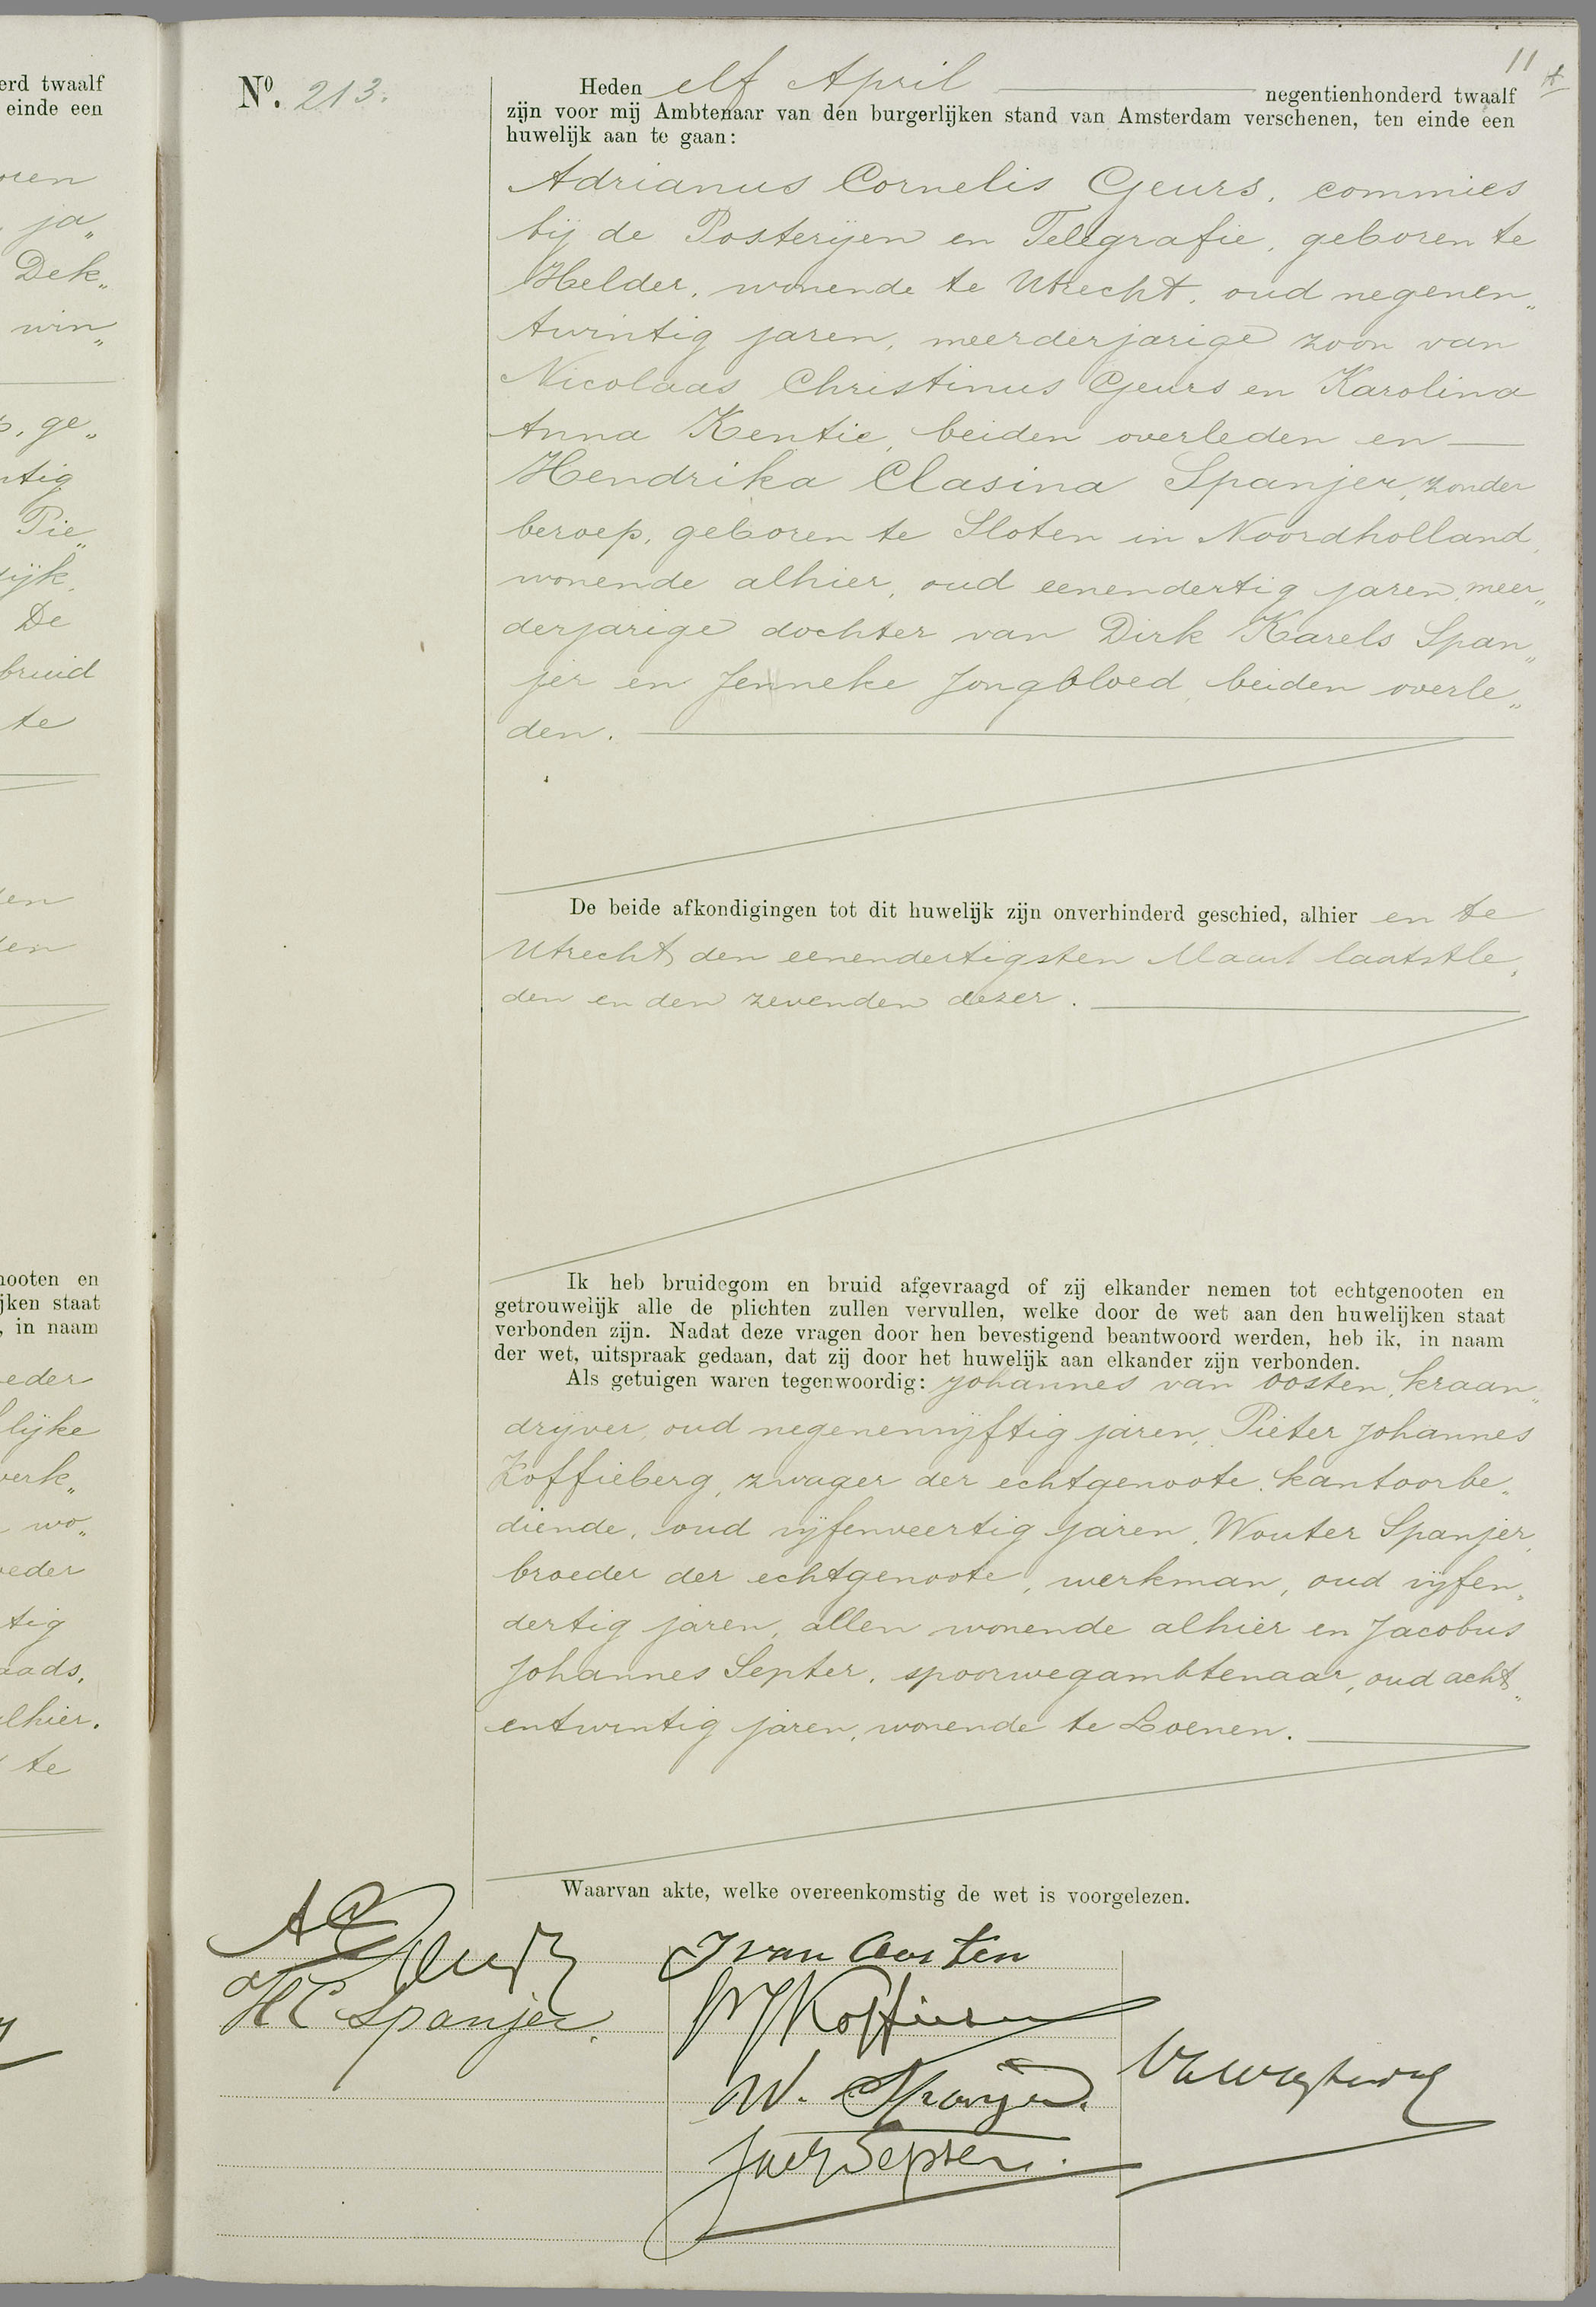 erd twaalf
einde een
ja„
Dek„
win„
ge„
ntig
Pie„
De
bruid
te
nooten en
jken staat
, in naam
eder
lijke
verk„
wo„
oeder
tig
aads,
alhier.
te
11
No. 213.
Heden elf April negentienhonderd twaalf
zijn voor mij Ambtenaar van den burgerlijken stand van Amsterdam verschenen, ten einde een
huwelijk aan te gaan:
Adrianus Cornelis Geurs, commies
bij de Posterijen en Telegrafie, geboren te
Helder, wonende te Utrecht, oud negenen„
twintig jaren, meerderjarige zoon van
Nicolaas Christinus Geurs en Karolina
Anna Kentie, beiden overleden en
Hendrika Clasina Spanjer, zonder
beroep, geboren te Sloten in Noordholland,
wonende alhier, oud eenendertig jaren, meer„
derjarige dochter van Dirk Karels Span„
jer en Jenneke Jongbloed, beiden overle„
den.
De beide afkondigingen tot dit huwelijk zijn onverhinderd geschied, alhier en te
Utrecht, den eenendertigsten Maart laatstle„
den en den zevenden dezer.
Ik heb bruidegom en bruid afgevraagd of zij elkander nemen tot echtgenooten en
getrouwelijk alle de plichten zullen vervullen, welke door de wet aan den huwelijken staat
verbonden zijn. Nadat deze vragen door hen bevestigend beantwoord werden, heb ik, in naam
der wet, uitspraak gedaan, dat zij door het huwelijk aan elkander zijn verbonden.
Als getuigen waren tegenwoordig: Johannes van Oosten, kraan„
drijver, oud negenenvijftig jaren, Pieter Johannes
Koffieberg, zwager der echtgenoote, kantoorbe„
diende, oud vijfenveertig jaren, Wouter Spanjer,
broeder der echtgenoote, werkman, oud vijfen„
dertig jaren, allen wonende alhier en Jacobus
Johannes Septer, spoorwegambtenaar, oud acht„
entwintig jaren, wonende te Loenen.
Waarvan akte, welke overeenkomstig de wet is voorgelezen.
A C Geurs
H C Spanjer.
J van Oosten
W. Spanjer.
Jac J Septer.